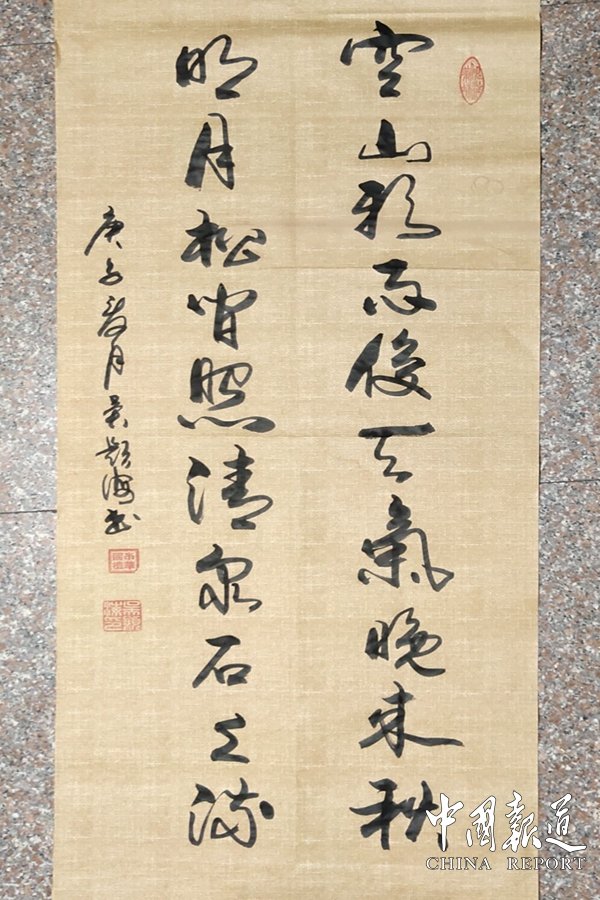 空山新雨後天氣晚来秋
明月松间照清泉石上流
庚子月吴海书
中国報道
CHINA REPORT